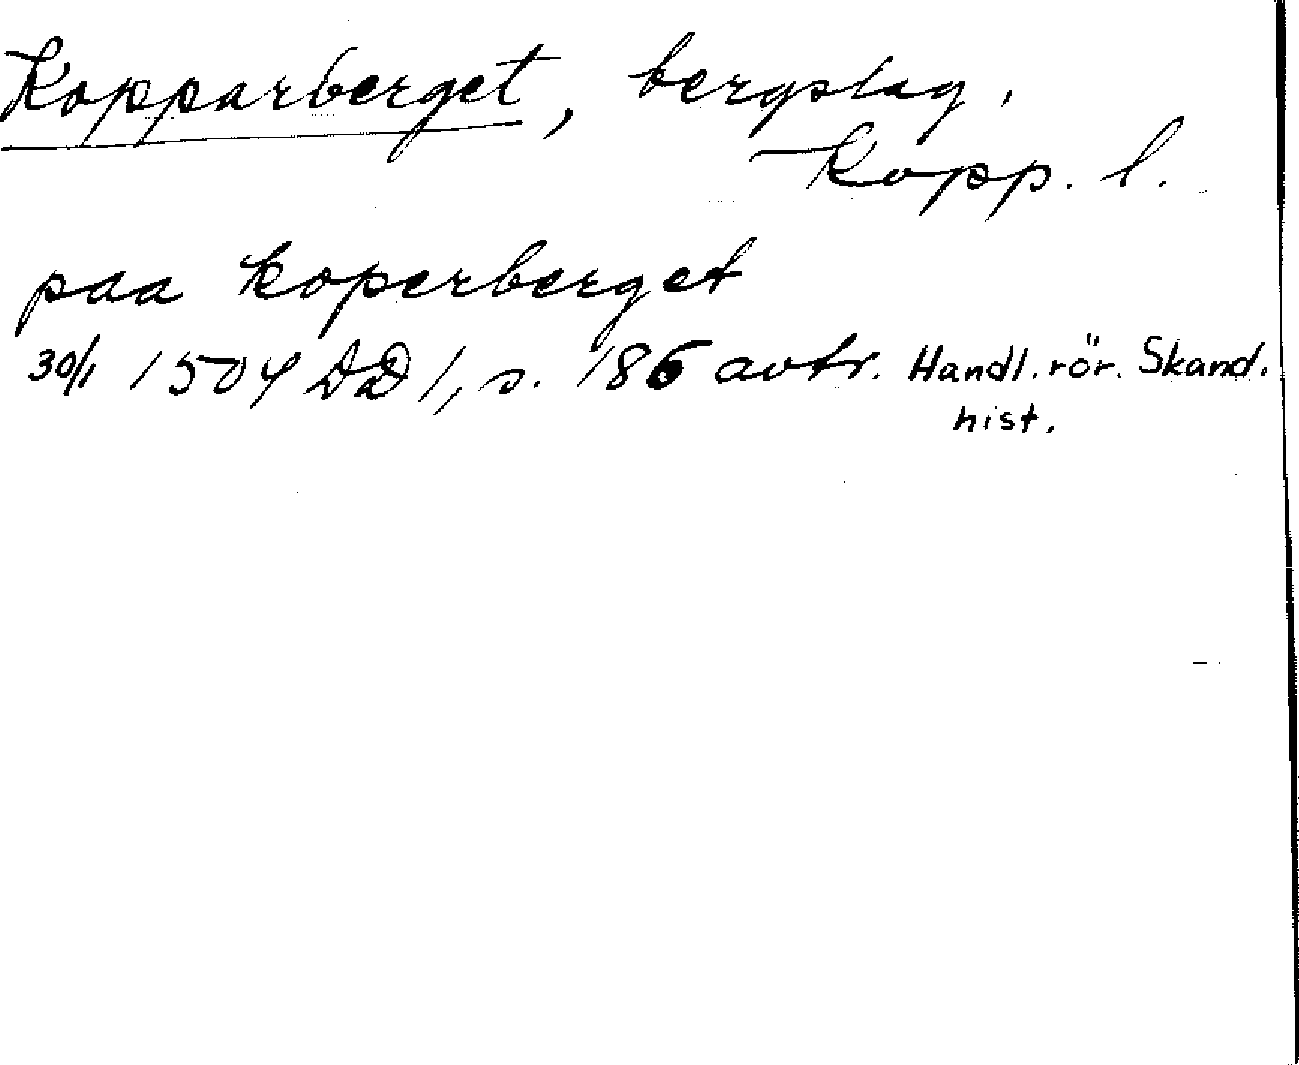 Kopparberget, bergslag,
Kopp. l.
paa koperberget
30/1 1504 DD 1, s. 186 avtr. Handl. rör. Skand.
hist.